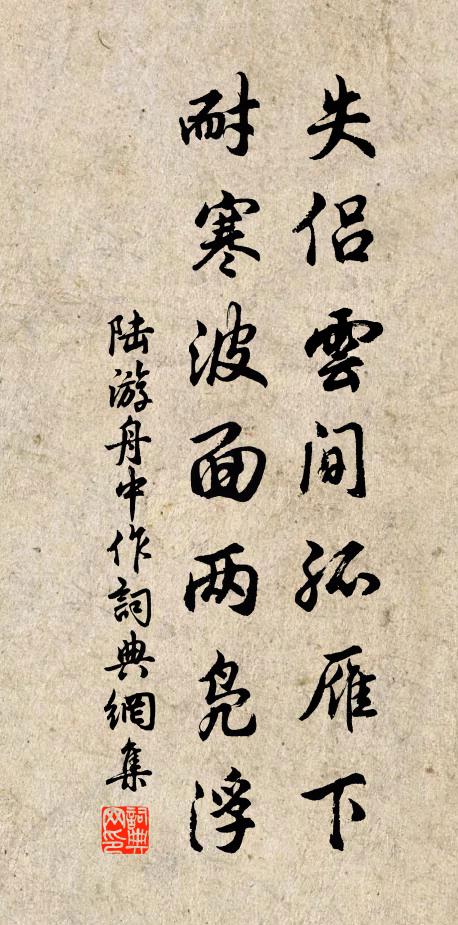 失侣雲間孤雁下
耐寒波面两凫浮
陆游舟中作詞典網集
詞典
网印